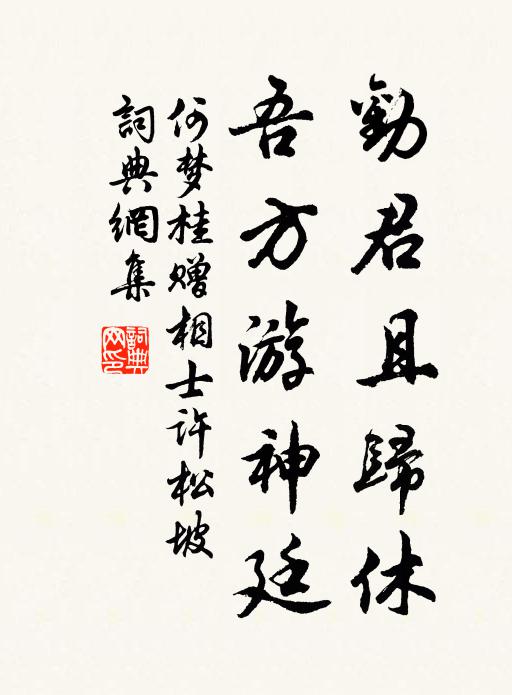 勸君且歸休
吾方游神廷
何梦桂赠相士许松坡
詞典網集
詞典网印